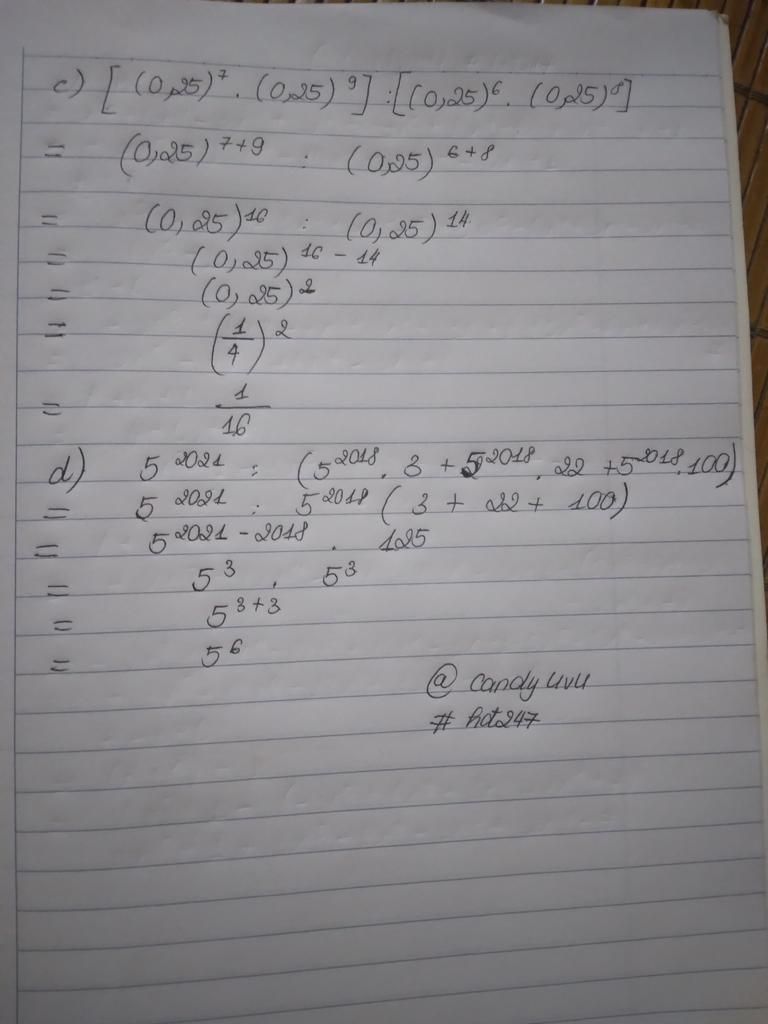 c) [(0,25)⁷ . (0,25)⁹] : [(0,25)⁶ . (0,25)⁸]
= (0,25)⁷⁺⁹ : (0,25)⁶⁺⁸
= (0,25)¹⁶ : (0,25)¹⁴
= (0,25)¹⁶⁻¹⁴
= (0,25)²
= (1/4)²
= 1/16
d) 5²⁰²¹ : (5²⁰¹⁸ . 3 + 5²⁰¹⁸ . 22 + 5²⁰¹⁸ . 100)
= 5²⁰²¹ : 5²⁰¹⁸ (3 + 22 + 100)
= 5²⁰²¹⁻²⁰¹⁸ . 125
= 5³ . 5³
= 5³⁺³
= 5⁶
@ candyuvu
# hot247